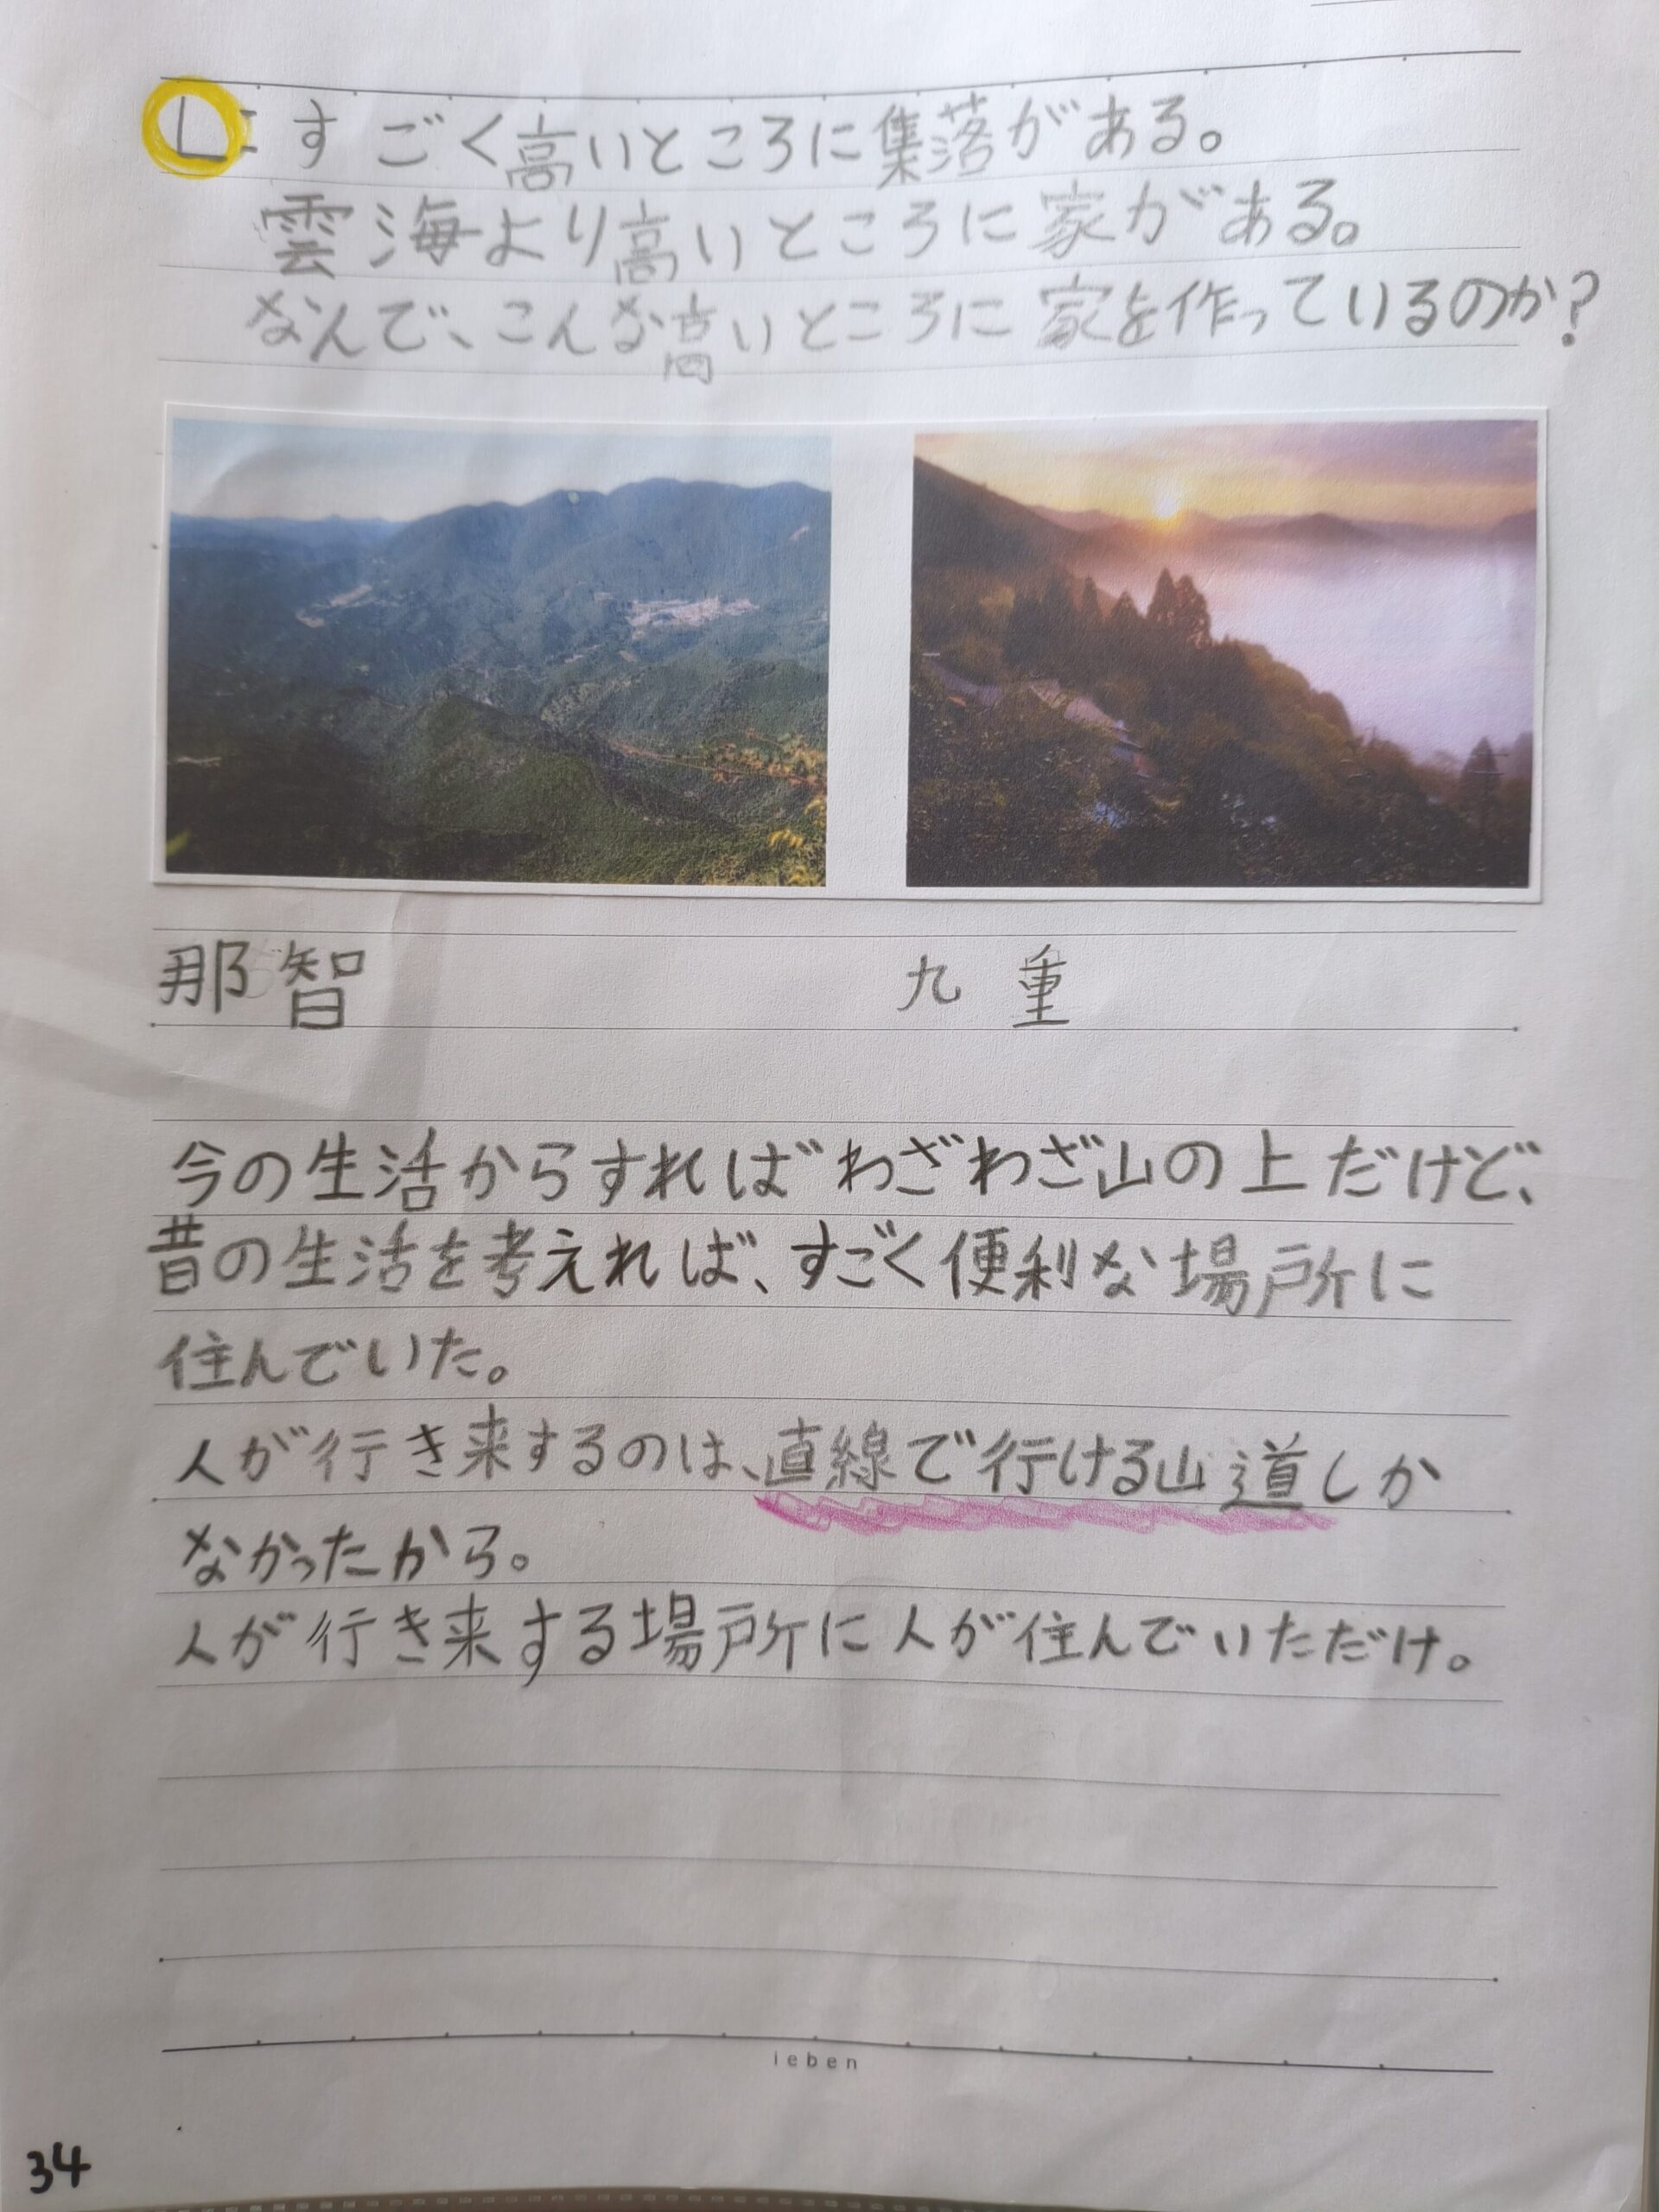 L:すごく高いところに集落がある。
雲海より高いところに家がある。
なんで、こんな高いところに家を作っているのか?
那智
九重
今の生活からすればわざわざ山の上だけど、
昔の生活を考えれば、すごく便利な場所に
住んでいた。
人が行き来するのは、直線で行ける山道しか
なかったから。
人が行き来する場所に人が住んでいただけ。
ieben
34